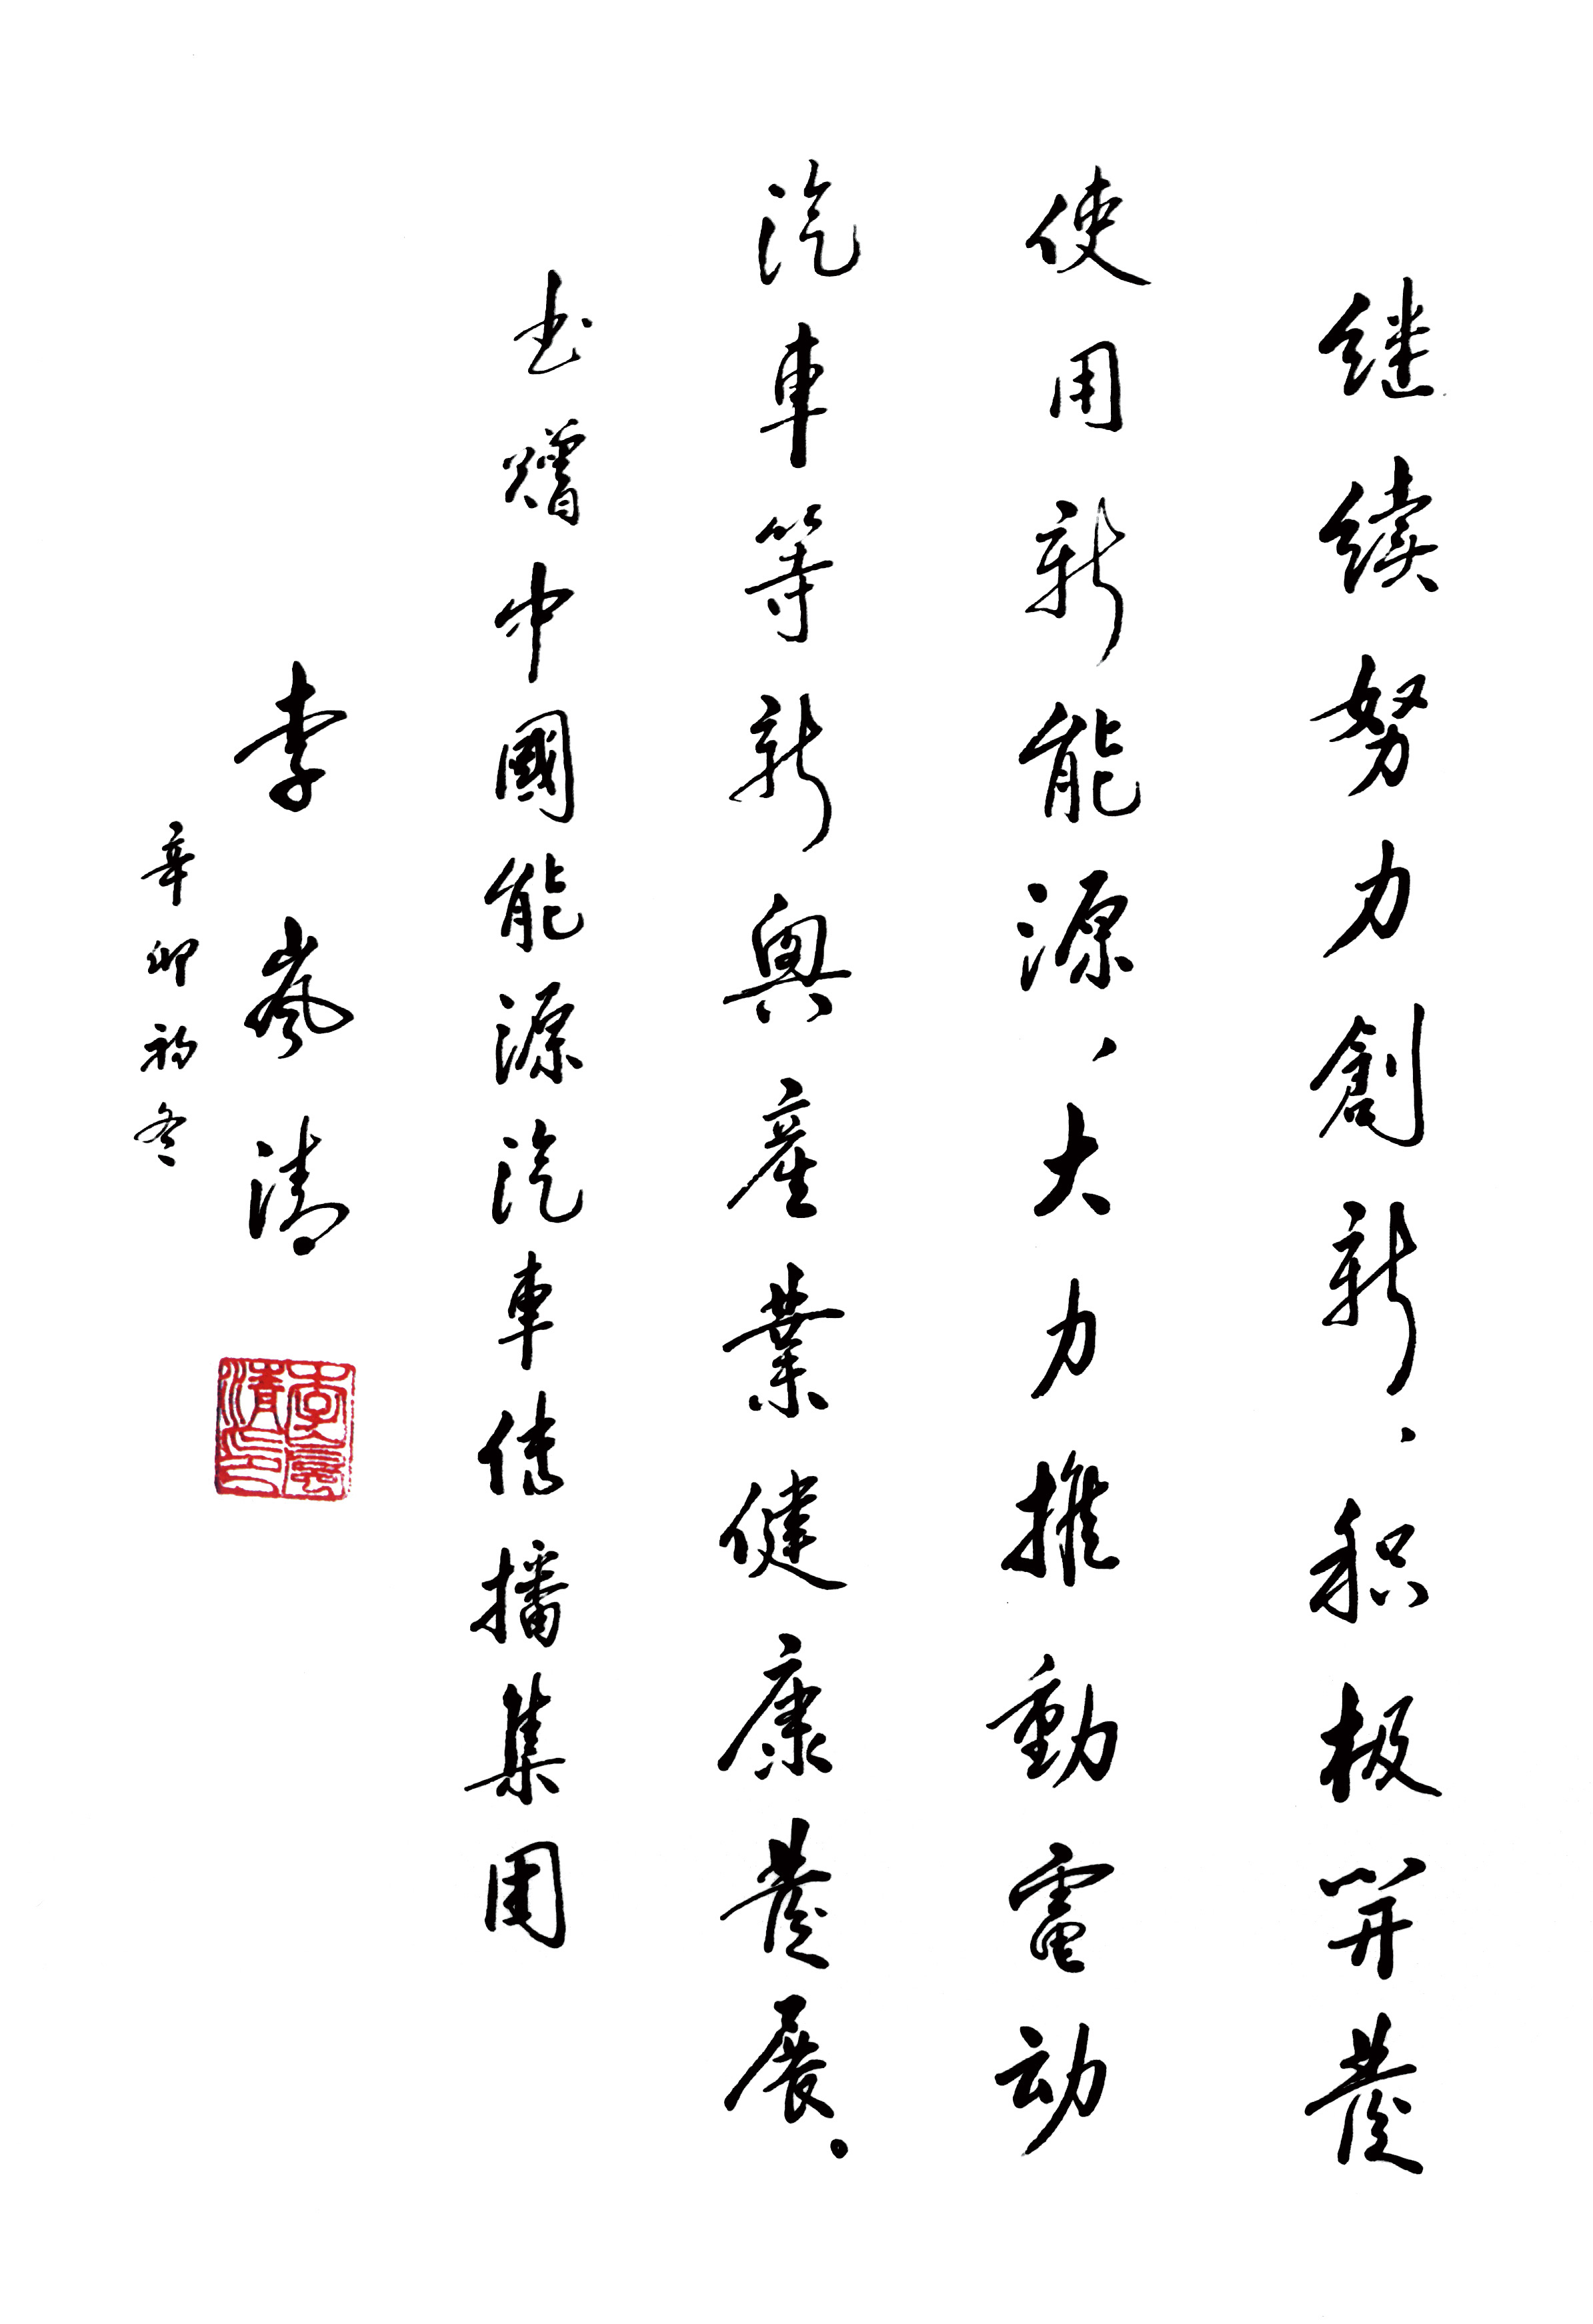 继续努力創新，积极開發
使用新能源，大力推動電动
汽車等新興産業健康發展。
书赠中國能源汽車传播集团
李岚清
辛卯初冬
李岚清印